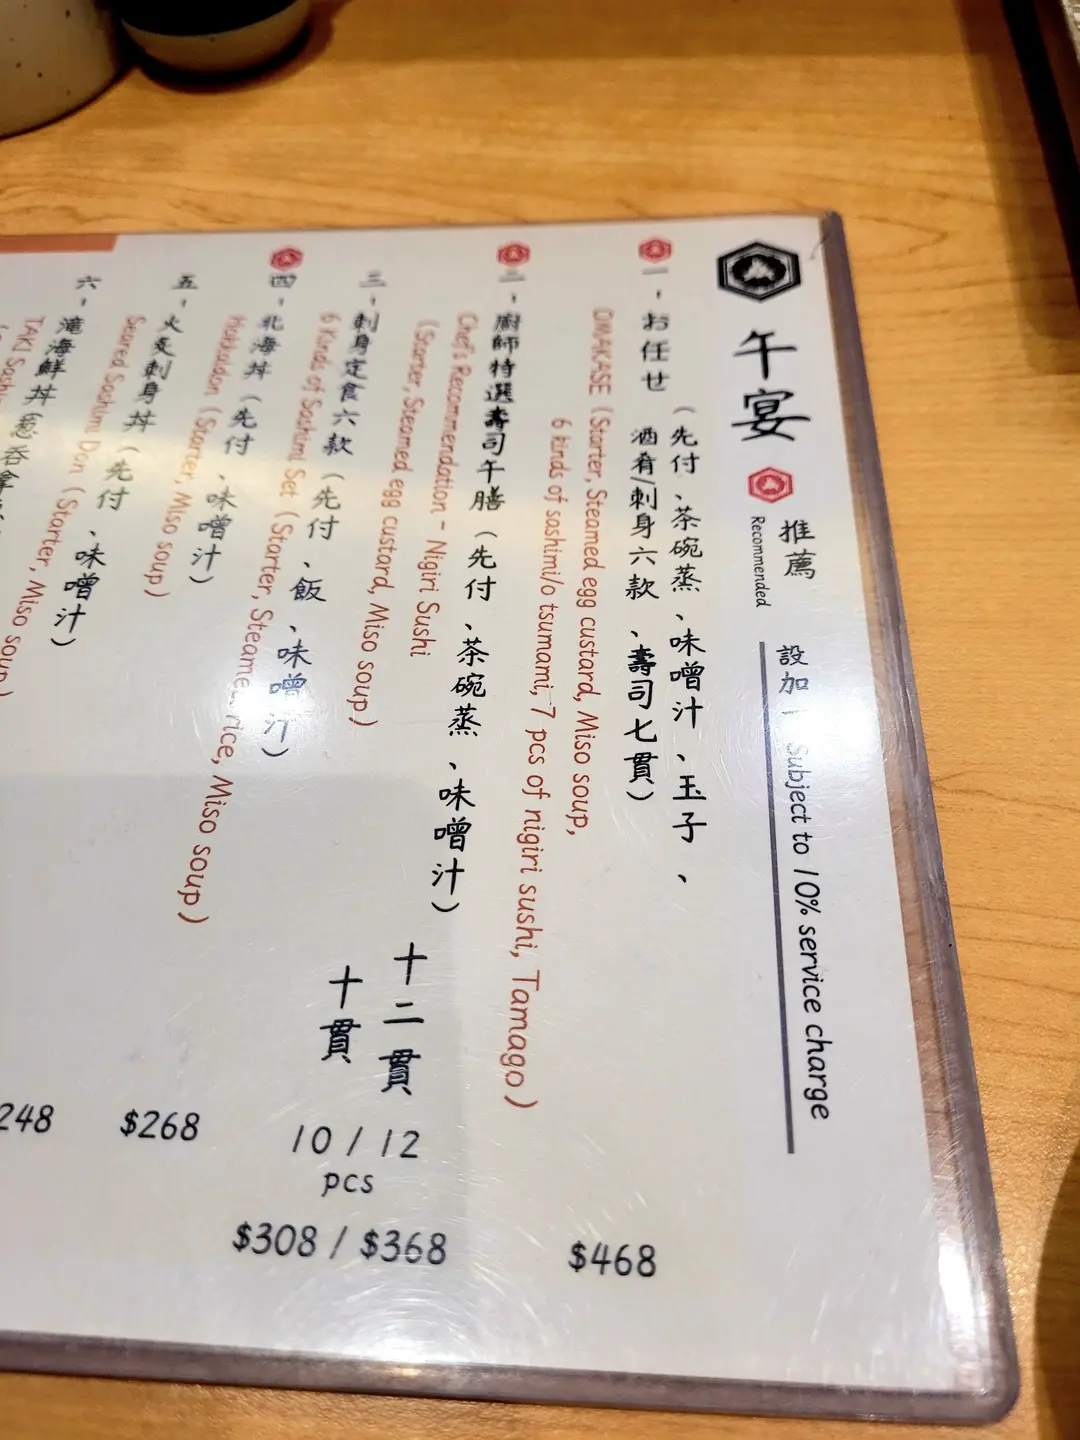 午宴
推薦
Recommended
設加一 Subject to 10% service charge
一、お任せ
(先付、茶碗蒸、味噌汁、玉子、
酒肴/刺身六款、壽司七貫)
OMAKASE (Starter, Steamed egg custard, Miso soup,
6 kinds of sashimi/o tsumami, 7 pcs of nigiri sushi, Tamago)
$468
二、廚師特選壽司午膳 (先付、茶碗蒸、味噌汁)
Chef's Recommendation - Nigiri Sushi
(Starter, Steamed egg custard, Miso soup)
十二貫
十貫
10 / 12
pcs
$308 / $368
三、刺身定食六款 (先付、飯、味噌汁)
6 Kinds of Sashimi Set (Starter, Steamed rice, Miso soup)
$268
四、北海丼 (先付、味噌汁)
Hokkaidon (Starter, Miso soup)
248
五、火炙刺身丼 (先付、味噌汁)
Seared Sashimi Don (Starter, Miso soup)
六、滝海鮮丼
TAKI